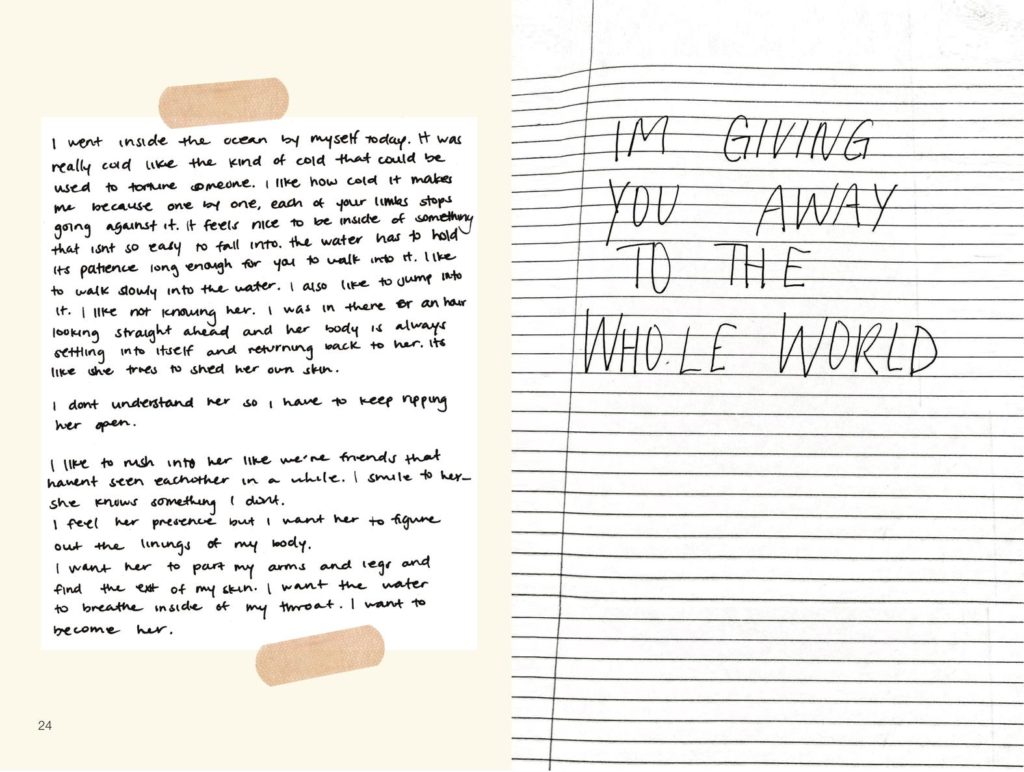 I went inside the ocean by myself today. It was
really cold like the kind of cold that could be
used to torture someone. I like how cold it makes
me because one by one, each of your limbs stops
going against it. it feels nice to be inside of something
that isnt so easy to fall into. the water has to hold
its patience long enough for you to walk into it. I like
to walk slowly into the water. I also like to jump into
it. I like not knowing her. I was in there for an hour
looking straight ahead and her body is always
settling into itself and returning back to her. its
like she tries to shed her own skin.
I dont understand her so I have to keep ripping
her open.
I like to rush into her like we're friends that
havent seen eachother in a while. I smile to her–
she knows something I dont.
I feel her presence but I want her to figure
out the linings of my body.
I want her to part my arms and legs and
find the exit of my skin. I want the water
to breathe inside of my throat. I want to
become her.
24
IM GIVING
YOU AWAY
TO THE
WHO.LE WORLD